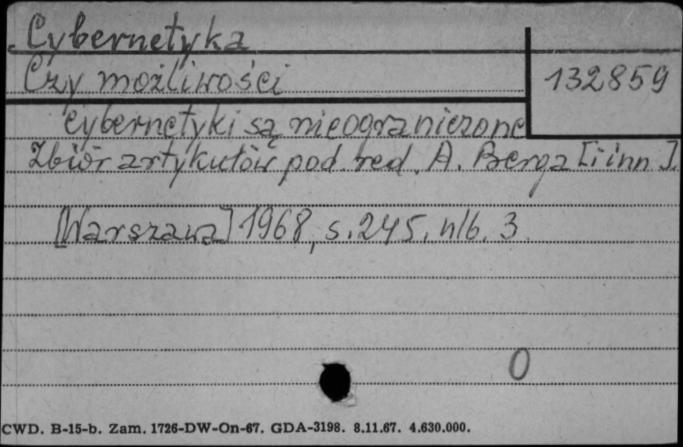 Cybernetyka
Czy możliwości
132859
cybernetyki są nieograniczone
Zbiór artykułów pod red. A. Berga [i inn.].
[Warszawa] 1968, s. 245, nlb. 3.
0
CWD. B-15-b. Zam. 1726-DW-On-67. GDA-3198. 8.11.67. 4.630.000.